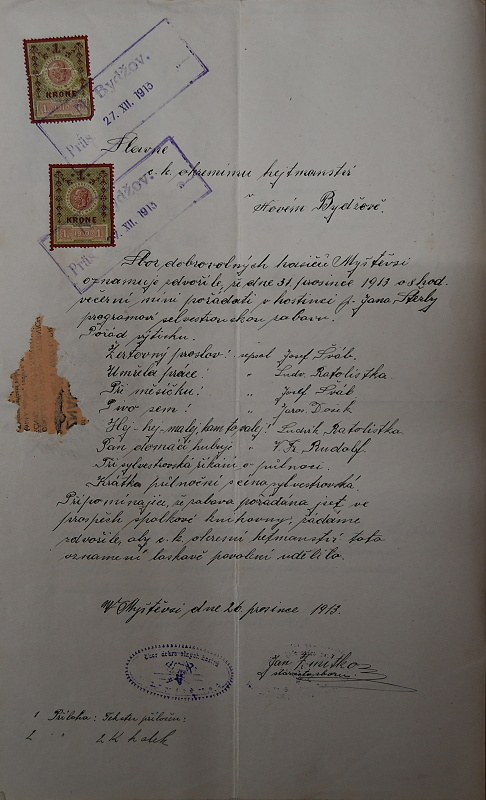 1
KRONE
Bydžov.
27. XII. 1913
Präs
1
KRONE
Bydžov.
27. XII. 1913
Präs
Slavné
c. k. okresnímu hejtmanství
v Novém Bydžově.
Sbor dobrovolných hasičů v Myštěvsi
oznamuje zdvořile, že dne 31. prosince 1913 o 8 hod.
večerní míní pořádati v hostinci p. Jana Šterly
programovou silvestrovskou zábavu.
Pořad výtisku.
Žertovný proslov! sepsal Josef Šváb.
Umřela práce! " Ludv. Ratolistka
Při měsíčku! " Josef Šváb
Pivo sem! " Jaros. Došek
Hej-hej-malej, kam to valej! Ludvík Ratolistka
Pan domácí hubuje " V. Fr. Rudolf.
Tři sylvestrovská říkání o půlnoci.
Krátká půlnoční scéna sylvestrovská.
Připomínajíce, že zábava pořádána jest ve
prospěch spolkové knihovny, žádáme
zdvořile, aby c. k. okresní hejtmanství toto
oznámení laskavě povolení udělilo.
V Myštěvsi dne 26. prosince 1913.
Jan Kmitko
starosta sboru.
1 Příloha: Text přiložen:
2 " 2 K kolek